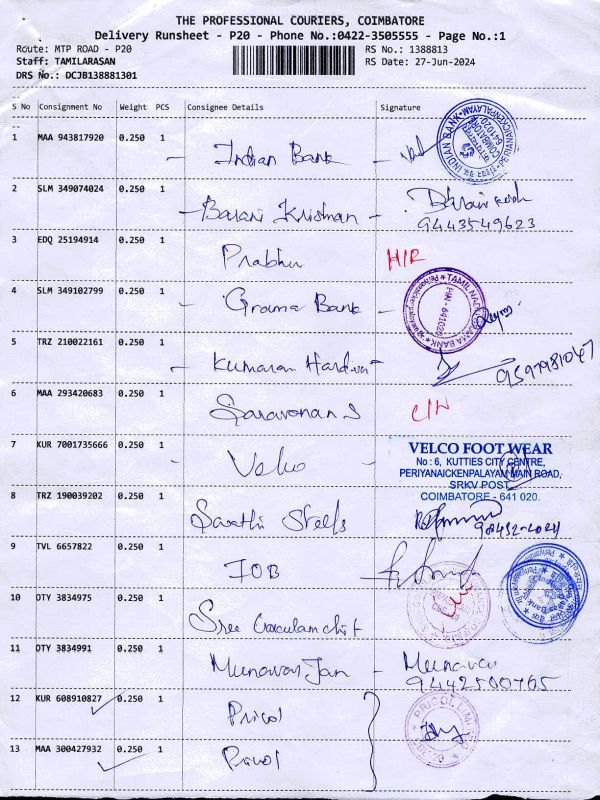 THE PROFESSIONAL COURIERS, COIMBATORE
Delivery Runsheet - P20 - Phone No.:0422-3505555 - Page No.:1
Route: MTP ROAD - P20 RS No.: 1388813
Staff: TAMILARASAN RS Date: 27-Jun-2024
DRS No.: DCJB138881301
S No Consignment No Weight PCS Consignee Details Signature
1 MAA 943817920 0.250 1 - Indian Bank -
INDIAN BANK PERIANAICKENPALAYAM COIMBATORE 641020
2 SLM 349074024 0.250 1 - Barani Krishnan -
9443549623
3 EDQ 25194914 0.250 1 Prabhu H/R
4 SLM 349102799 0.250 1 - Grama Bank -
TAMIL NADU GRAMA BANK PIN - 641020
5 TRZ 210022161 1 - Kumaran 9597981047
6 MAA 293420683 0.250 1 Saravanan S
7 KUR 7001735666 0.250 1 - Velco -
VELCO FOOT WEAR
No : 6, KUTTIES CITY CENTRE,
PERIYANAICKENPALAYAM MAIN ROAD,
SRKV POST,
COIMBATORE - 641 020.
8 TRZ 190039202 0.250 1 Sarathi Steels
9 TVL 6657822 0.250 1 IOB
10 OTY 3834975 0.250 1 Sree
11 OTY 3834991 0.250 1 Munavar Jan - Munavar
9442500765
12 KUR 608910827 0.250 1 Pricol
PRICOL LIMITED
13 MAA 300427932 0.250 1 Pricol